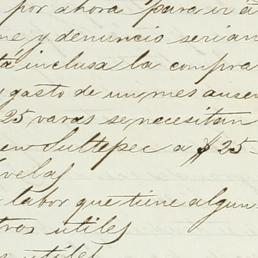 por ahora para ir á
ne y denuncio serian
tá inclusa la compra
y gasto de un mes ausen
25 varas se necesitan
en Sultepec a $25-
velas
labor que tiene algun
tros utiles
utiles